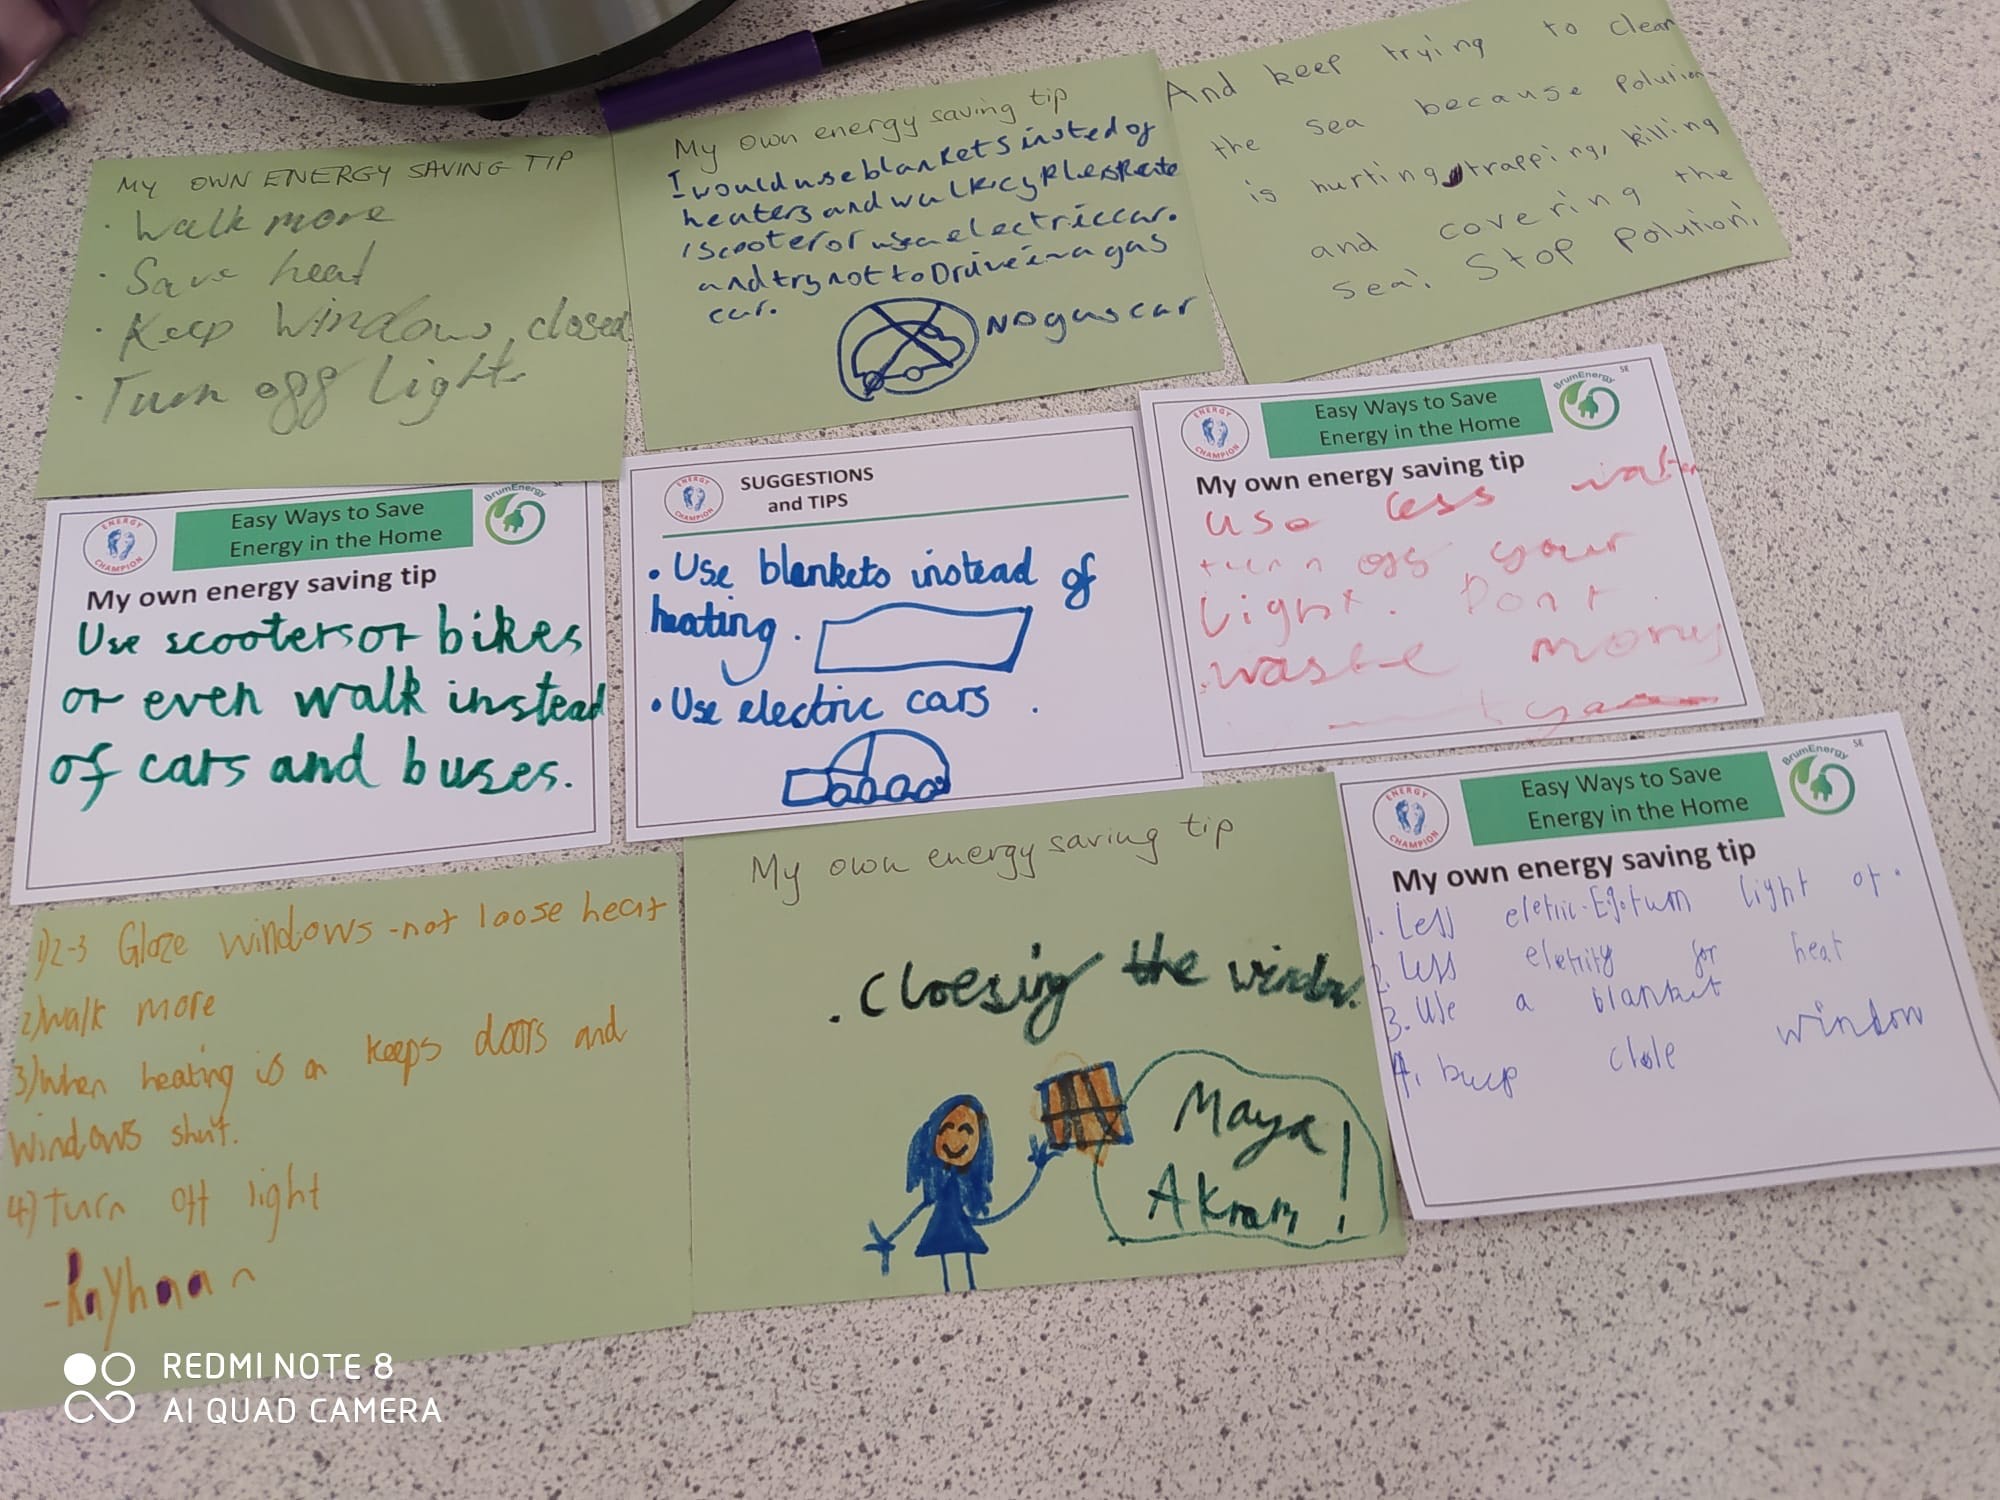 MY OWN ENERGY SAVING TIP
· Walk more
· Save heat
· Keep Windows closed
· Turn off Light
My own energy saving tip
I would use blankets insted of
heaters and walk/cykle/skate
/scooter or use a electric car.
and try not to Drive in a gas
car.
No gas car
And keep trying to clean
the sea because Polution
is hurting, trapping, killing
and covering the
sea. Stop Polution.
ENERGY CHAMPION
Easy Ways to Save
Energy in the Home
BrumEnergy
My own energy saving tip
Use scooters or bikes
or even walk instead
of cars and buses.
ENERGY CHAMPION
SUGGESTIONS
and TIPS
• Use blankets instead of
heating.
• Use electric cars.
ENERGY CHAMPION
Easy Ways to Save
Energy in the Home
BrumEnergy
SE
My own energy saving tip
use less
turn off your
light. Dont
waste money
1) 2-3 Glaze windows - not loose heat
2) walk more
3) When heating is on keeps doors and
windows shut.
4) Turn off light
- Rayhaan
My own energy saving tip
. Cloesing the window.
Maya
Akram!
ENERGY CHAMPION
Easy Ways to Save
Energy in the Home
BrumEnergy
SE
My own energy saving tip
1. Less turn light of.
2. Less eletrity for heat
3. Use a blanket
4. window
REDMI NOTE 8
AI QUAD CAMERA